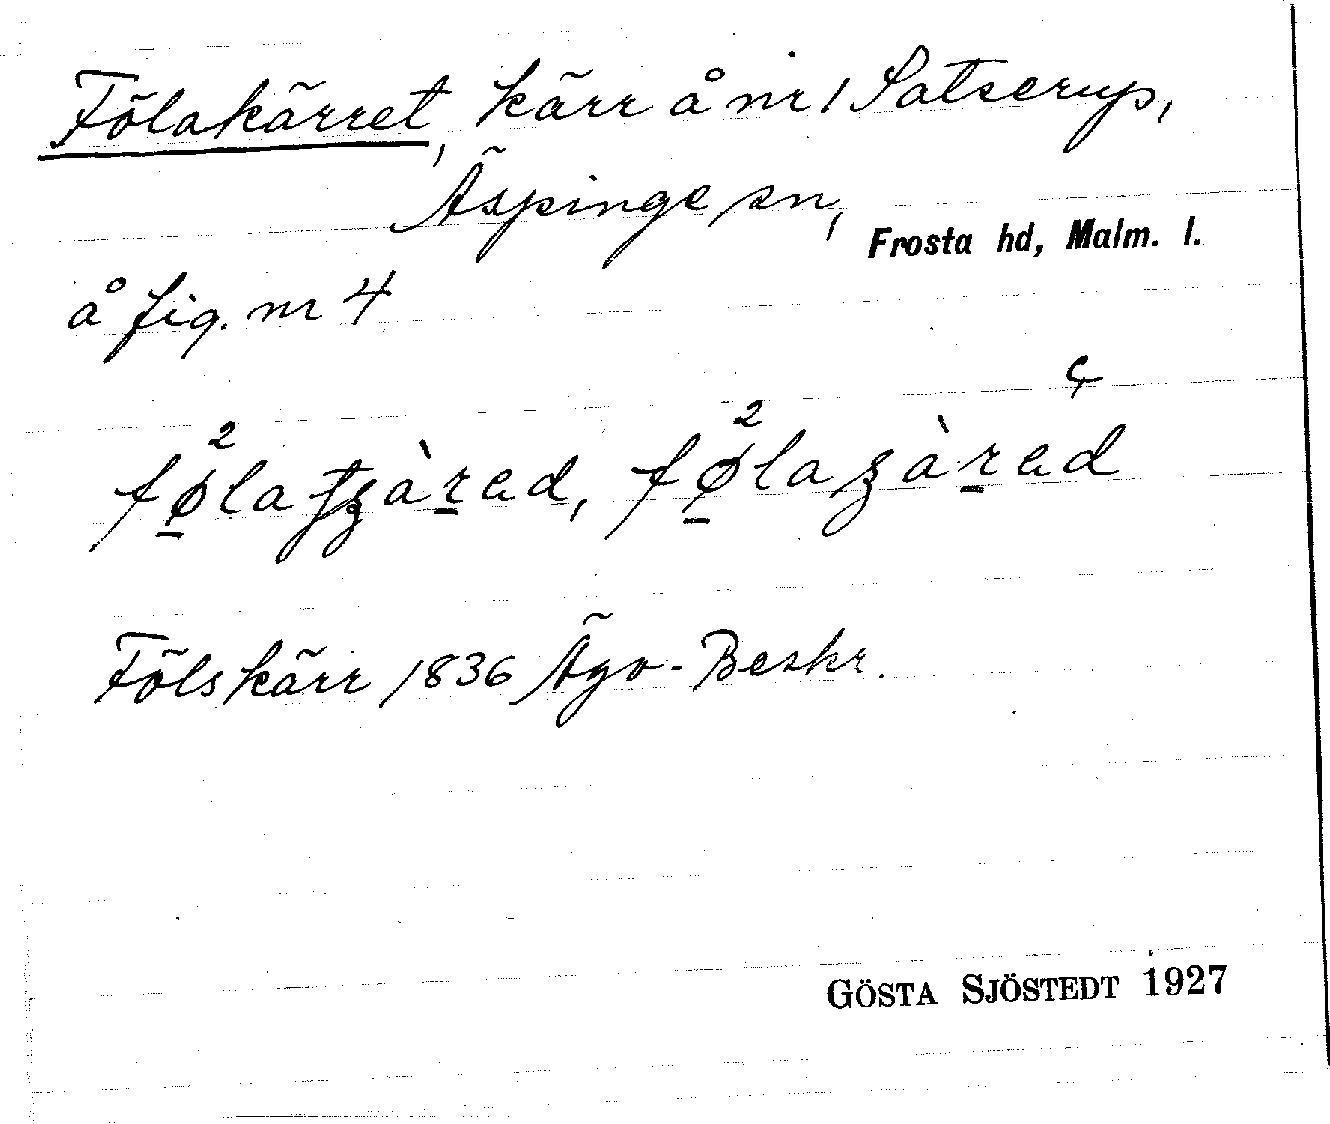 Fölakärret, kärr å nr 1 Satserup,
Äspinge sn,
Frosta hd, Malm. l.
å fig. nr 4
Fölskärr 1836 Ägo-Beskr.
GÖSTA SJÖSTEDT 1927